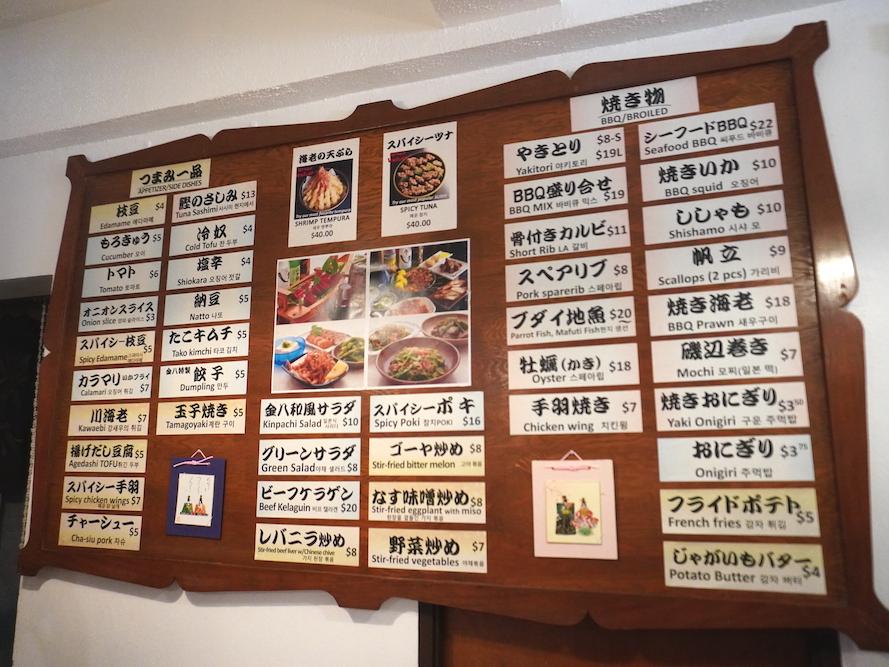 つまみ一品
APPETIZER/SIDE DISHES
枝豆 $4
Edamame 에다마메
もろきゅう $5
Cucumber 오이
トマト $6
Tomato 토마토
オニオンスライス
Onion slice $3
スパイシー枝豆 $5
Spicy Edamame
カラマリ いかフライ $7
Calamari 오징어 튀김
川海老 $7
Kawaebi
揚げだし豆腐 $5
Agedashi TOFU 튀긴 두부
スパイシー手羽 $7
Spicy chicken wings
チャーシュー $5
Cha-siu pork 차슈
鰹のさしみ $13
Tuna Sashimi
冷奴 $4
Cold Tofu 찬 두부
塩辛 $4
Shiokara 오징어 젓갈
納豆 $5
Natto 나또
たこキムチ $5
Tako kimchi 타코 김치
金八特製 餃子 $5
Dumpling 만두
玉子焼き $5
Tamagoyaki 계란 구이
海老の天ぷら
SHRIMP TEMPURA
$40.00
スパイシーツナ
SPICY TUNA
$40.00
金八和風サラダ
Kinpachi Salad $10
グリーンサラダ
Green Salad 야채 샐러드 $8
ビーフケラゲン
Beef Kelaguin $20
レバニラ炒め
Stir-fried beef liver w/Chinese chive $8
スパイシーポキ
Spicy Poki 참치POKI $16
ゴーヤ炒め $8
Stir-fried bitter melon
なす味噌炒め $8
Stir-fried eggplant with miso
野菜炒め $7
Stir-fried vegetables 야채볶음
焼き物
BBQ/BROILED
やきとり $8-S
Yakitori 야키토리 $19L
BBQ盛り合せ
BBQ MIX 바비큐 믹스 $19
骨付きカルビ $11
Short Rib LA 갈비
スペアリブ $8
Pork sparerib 스페아립
ブダイ地魚 $20
Parrot Fish, Mafuti Fish
牡蠣(かき) $18
Oyster 스페아립
手羽焼き $7
Chicken wing 치킨윙
シーフードBBQ $22
Seafood BBQ 씨푸드 바비큐
焼きいか $10
BBQ squid 오징어
ししゃも $10
Shishamo 시샤 모
帆立 $9
Scallops (2 pcs) 가리비
焼き海老 $18
BBQ Prawn 새우구이
磯辺巻き $7
Mochi 모찌(일본 떡)
焼きおにぎり $3.50
Yaki Onigiri 구운 주먹밥
おにぎり $3.75
Onigiri 주먹밥
フライドポテト $5
French fries 감자 튀김
じゃがいもバター $4
Potato Butter 감자 버터